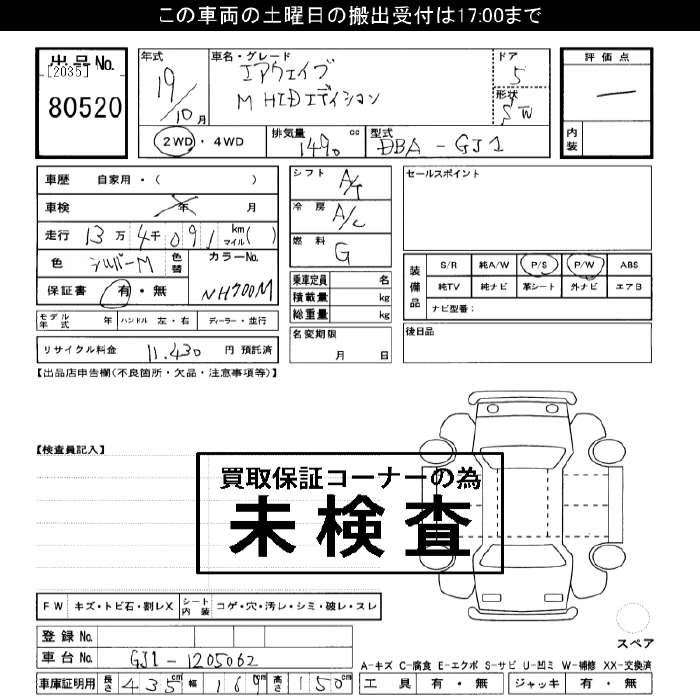 この車両の土曜日の搬出受付は17:00まで
出品No. [2035] 80520
年式 19/10月
車名・グレード エアウェイブ M HIDエディション
ドア 5
形状 SW
評価点 ―
内装
2WD・4WD
排気量 1490 cc
型式 DBA-GJ1
車歴 自家用・( )
車検 年 月
走行 13万4千091 km マイル( )
色 シルバーM 色替 カラーNo. NH700M
保証書 有・無
モデル年式 年 ハンドル 左・右 ディーラー・並行
リサイクル料金 11,430 円 預託済
シフト A/T
冷房 A/C
燃料 G
乗車定員 名
積載量 kg
総重量 kg
名変期限 月 日
セールスポイント
装備品 S/R 純A/W P/S P/W ABS
純TV 純ナビ 革シート 外ナビ エアB
ナビ型番:
後日品
【出品店申告欄(不良箇所・欠品・注意事項等)】
【検査員記入】
買取保証コーナーの為
未検査
FW キズ・トビ石・割レX シート内装 コゲ・穴・汚レ・シミ・破レ・スレ
登録No.
車台No. GJ1-1205062
車庫証明用 長さ 435cm 幅 169cm 高さ 150cm
スペア
A-キズ C-腐食 E-エクボ S-サビ U-凹ミ W-補修 XX-交換済
工具 有・無 ジャッキ 有・無